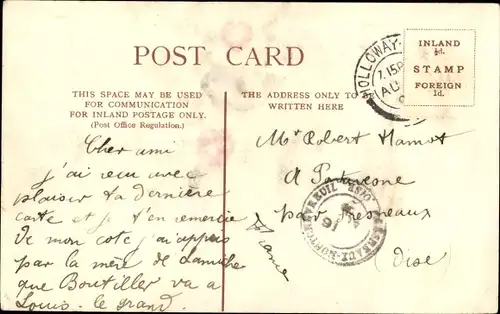 POST CARD
THIS SPACE MAY BE USED
FOR COMMUNICATION
FOR INLAND POSTAGE ONLY.
(Post Office Regulation.)
THE ADDRESS ONLY TO
WRITTEN HERE
INLAND
½d.
STAMP
FOREIGN
1d.
HOLLOWAY
7.15P
AU
Cher ami
j'ai reçu avec
plaisir ta dernière
carte et je t'en remercie
De mon coté j'ai appris
par la mère de
que Boutiller va a
Louis-le grand.
Mr Robert Hamot
A
par Fresneaux
(Oise)
France